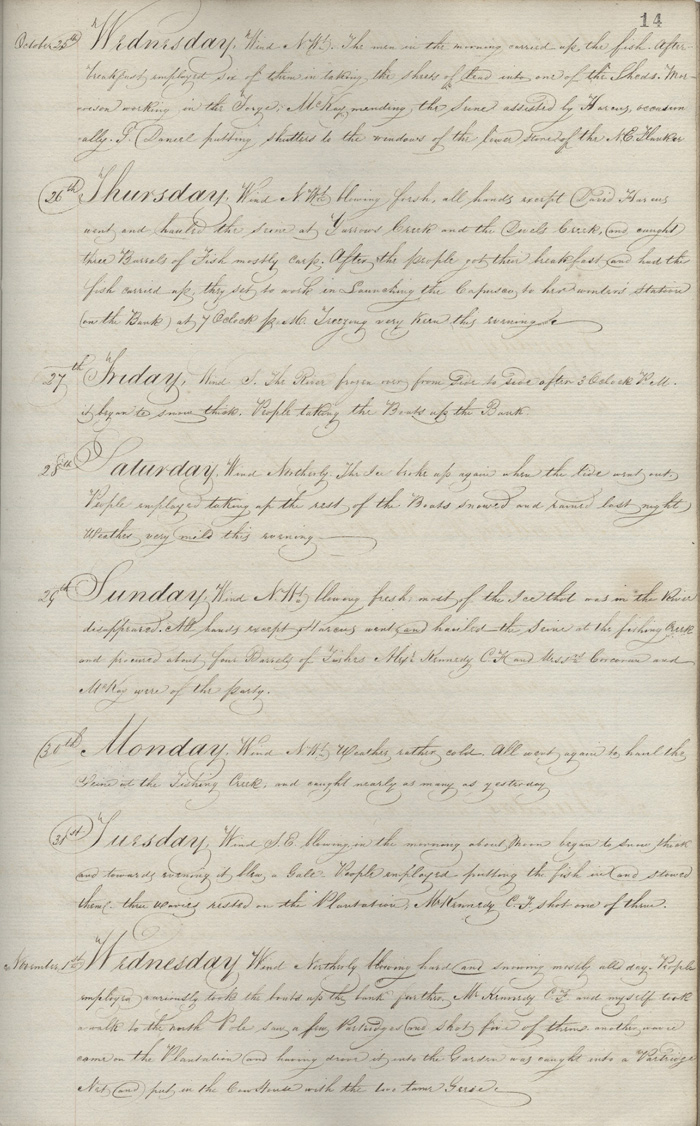 14
October 25th Wednesday, Wind N.W. The men in the morning carried up the fish. After
breakfast employed six of them in taking the sheets of lead into one of the Sheds. Mor-
working in the Forge, McKay mending the Seine assisted by Harcus, occasion
ally. T. Daniel putting shutters to the windows of the lower stores of the N.E. Flanker
26th Thursday, Wind N.W. blowing fresh, all hands except David Harcus
went and hauled the seine at Garrows Creek and the Devels Creek, and caught
three Barrels of Fish mostly carp. After the people got their breakfast and had the
fish carried up, they set to work in Launching the Capusco to her winter's station
(on the Bank) at 7 OClock p.M. Freezing very keen this evening
27th Friday, Wind S. The River frozen over from Side to Side after 3 OClock P.M.
it began to snow thick. People taking the Boats up the Bank
28th Saturday. Wind Northerly The Ice broke up again when the tide went out.
People employed taking up the rest of the Boats snowed and rained last night
Weather very mild this evening
29th Sunday, Wind N.W. blowing fresh most of the Ice that was in the River
disappeared. All hands except Harcus went and hauled the Seine at the fishing Creek
and procured about four Barrels of Fishes Alexr. Kennedy C.F. and Messrs. Corcoran and
McKay were of the party.
30th Monday. Wind N.W. Weather rather cold. All went again to haul the
Seine at the Fishing Creek, and caught nearly as many as yesterday
31st Tuesday, Wind S.E. blowing in the morning about Noon began to snow thick
and towards evening it blew a Gale. People employed putting the fish in and stowed
them. three wavies rested on the Plantation, Mr Kennedy C.F. shot one of them.
November 1st Wednesday Wind Northerly blowing hard and snowing mostly all day. People
employed variously took the boats up the bank further. Mr. Kennedy C.F. and myself took
a walk to the north Pole saw a few Partridges and shot five of them another wavie
came on the Plantation and having drove it into the Garden was caught into a Partridge
Net and put in the Cow House with the two tame Geese.